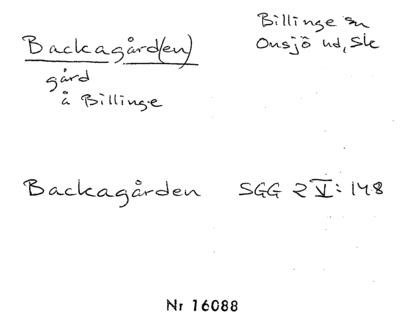 Backagård(en)
Billinge sn
Onsjö hd, Sk
gård
å Billinge
Backagården SGG 2 V: 148
Nr 16088